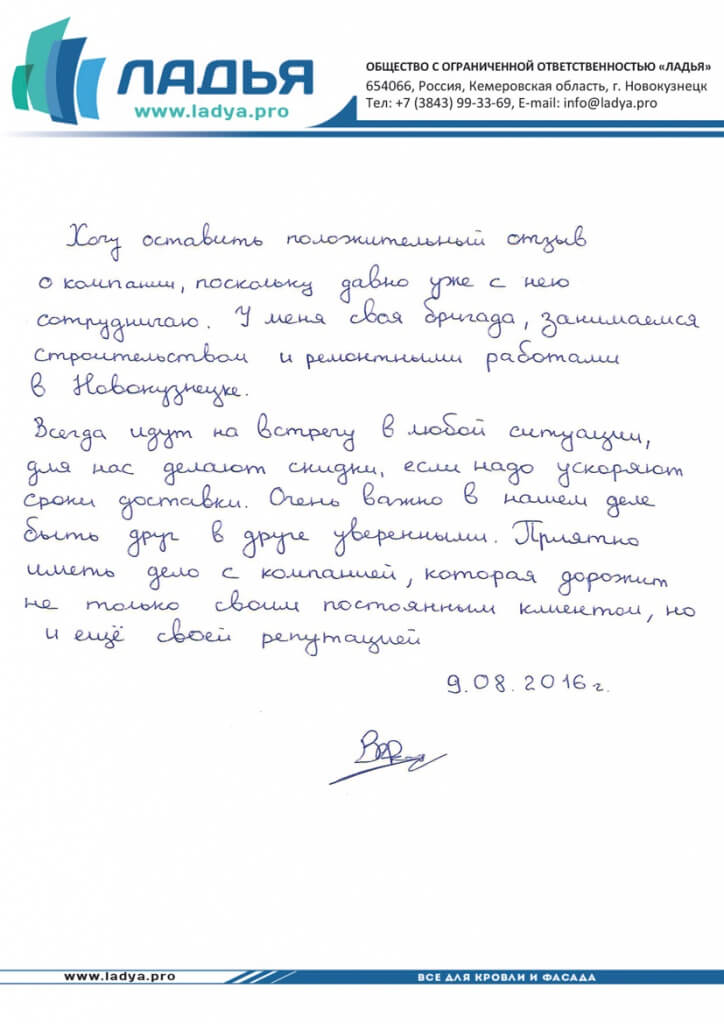 ЛАДЬЯ
www.ladya.pro
ОБЩЕСТВО С ОГРАНИЧЕННОЙ ОТВЕТСТВЕННОСТЬЮ «ЛАДЬЯ»
654066, Россия, Кемеровская область, г. Новокузнецк
Тел: +7 (3843) 99-33-69, E-mail: info@ladya.pro
Хочу оставить положительный отзыв
о компании, поскольку давно уже с нею
сотрудничаю. У меня своя бригада, занимаемся
строительством и ремонтными работами
в Новокузнецке.
Всегда идут на встречу в любой ситуации,
для нас делают скидки, если надо ускоряют
сроки доставки. Очень важно в нашем деле
быть друг в друге уверенными. Приятно
иметь дело с компанией, которая дорожит
не только своим постоянным клиентом, но
и ещё своей репутацией
9.08.2016 г.
www.ladya.pro
ВСЕ ДЛЯ КРОВЛИ И ФАСАДА